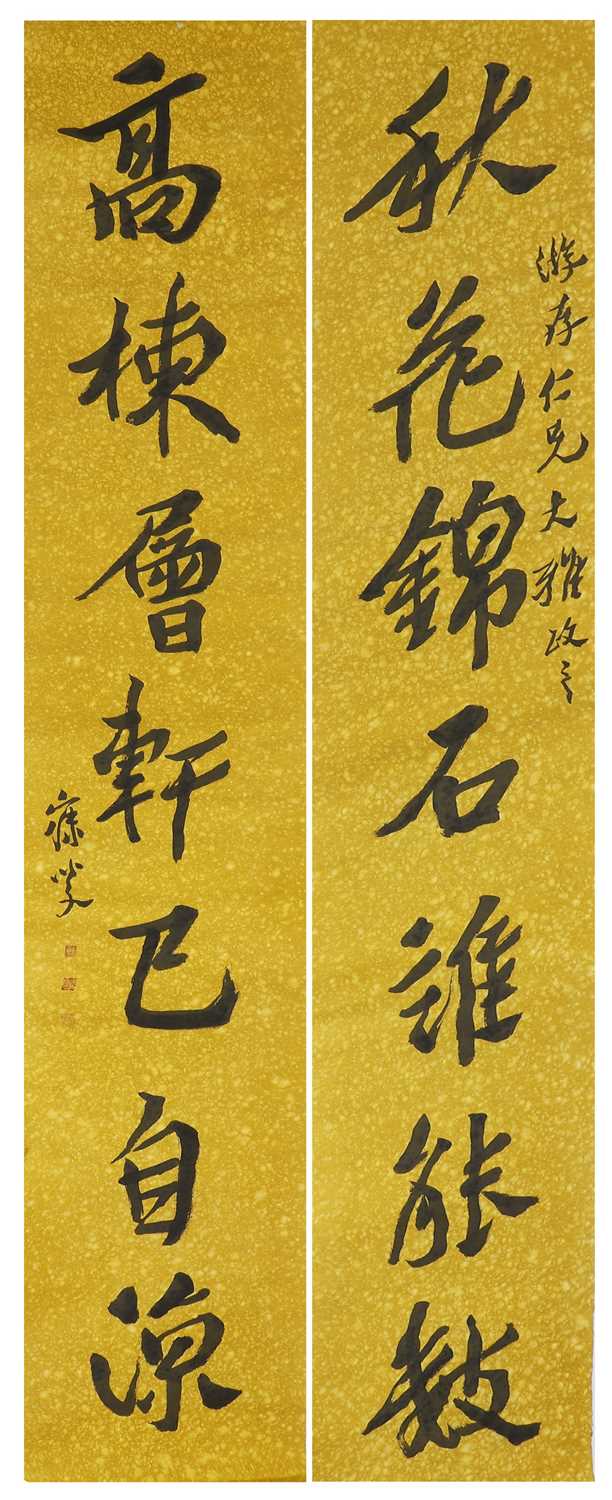 秋花錦石誰能數
游存仁兄大雅政之
高棟層軒已自涼
寐叟